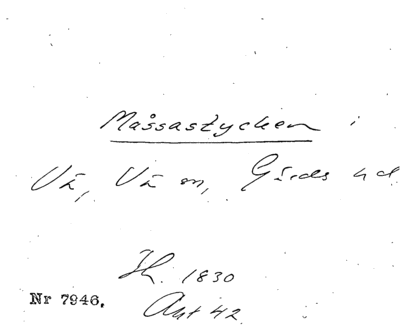 Måssastycken i
Vä, Vä sn, Gärds hd
Ih. 1830
Nr 7946.
Akt 42